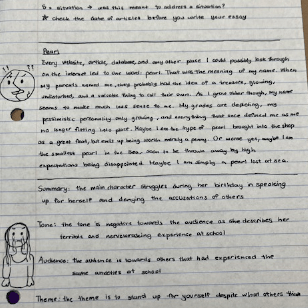 S = situation → was this meant to address a situation?
* check the date of articles before you write your essay
Pearl
Every website, article, database, and any other place I could possibly look through
on the internet led to one word: pearl. That was the meaning of my name. When
my parents named me, they probably had the idea of a treasure, glowing,
and a valuable thing to call their own. As I grew older though, my name
seems to make much less sense to me. My grades are depleting, my
pessimistic personality only growing, and everything that once defined me as me
no longer fitting into place. Maybe I am the type of pearl brought into the shop
as a great find, but ends up being worth merely a penny. Or worse yet, maybe I am
the smallest pearl in the sea, soon to be thrown away by high
expectations being disappointed. Maybe I am simply a pearl lost at sea.
Summary: the main character struggles during her birthday in speaking
up for herself and denying the accusations of others
Tone: the tone is negative towards the audience as she describes her
terrible and nervewracking experience at school
Audience: the audience is towards others that had experienced the
same anxieties at school
Theme: the theme is to stand up for yourself despite what others